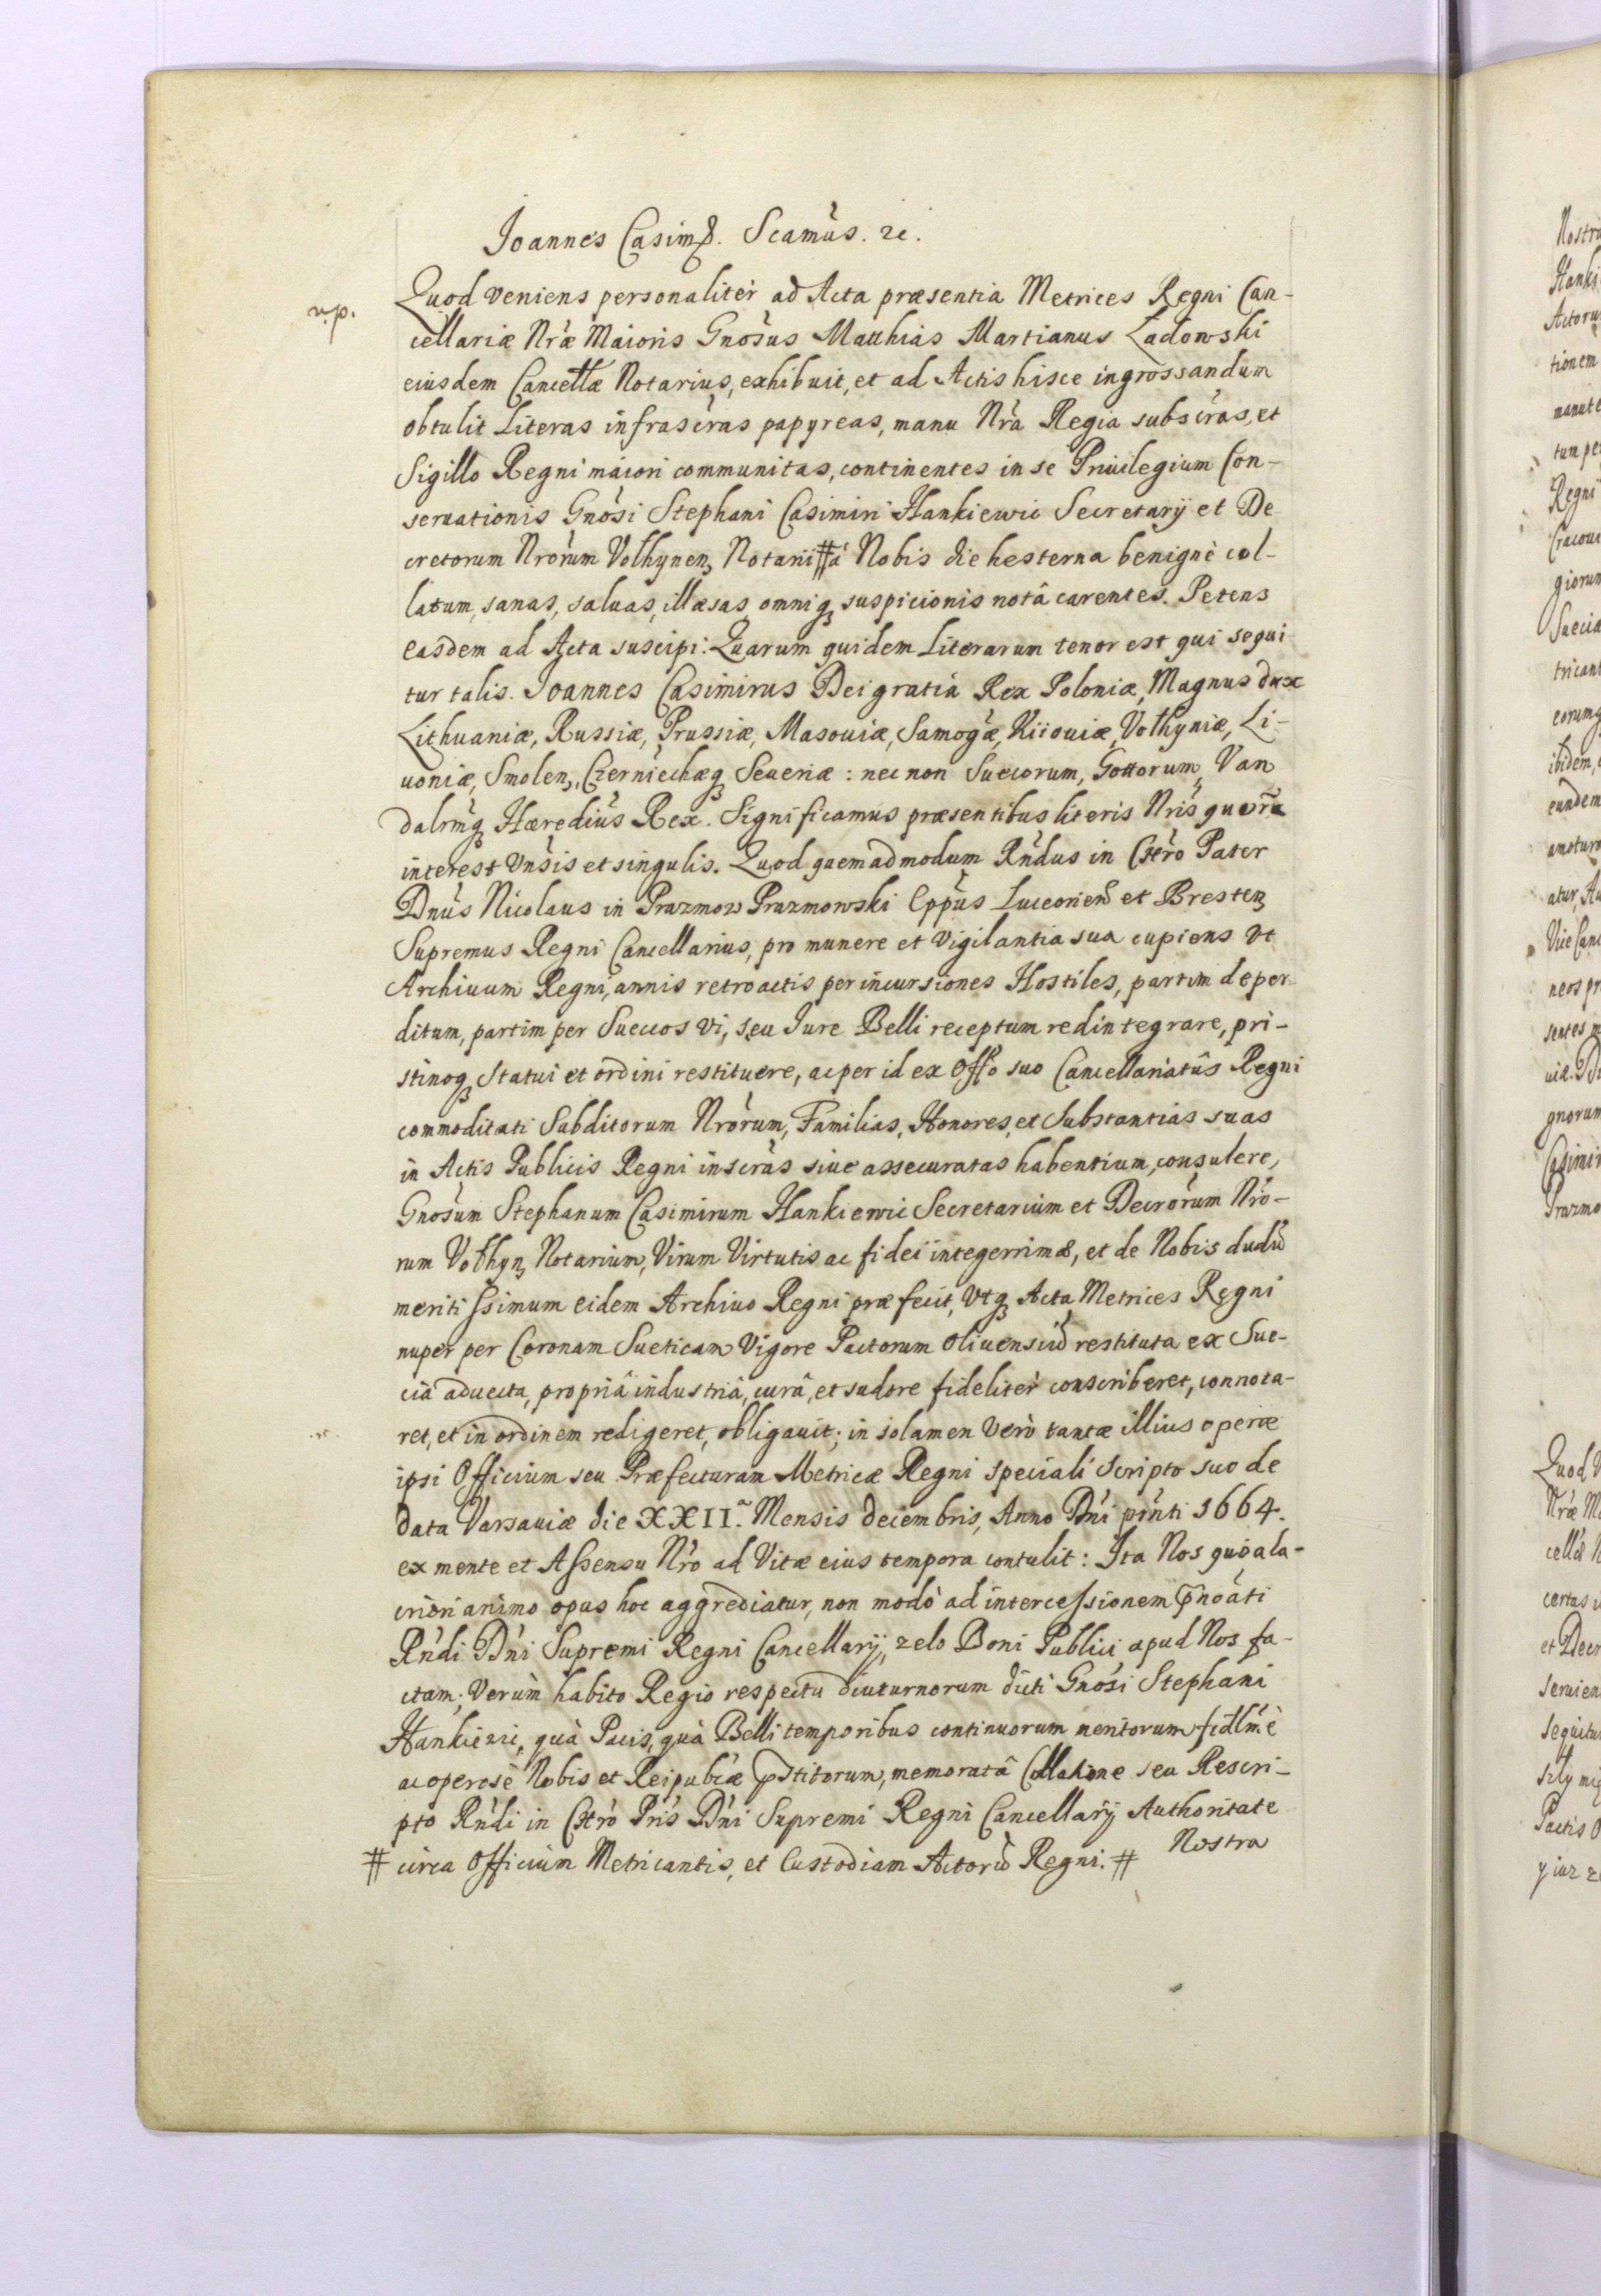 Joannes Casimꝰ. Scamus. ꝛc.
v.p.
Quod veniens personaliter ad Acta præsentia Metrices Regni Can-
cellariæ Nræ Maioris Gnosus Matthias Martianus Ladowski
eiusdem Cancellæ Notarius, exhibuit, et ad Actis hisce ingrossandum
obtulit Literas infrascras papyreas, manu Nra Regia subscras, et
Sigillo Regni maiori communitas, continentes in se Priuilegium Con-
seruationis Gnosi Stephani Casimiri Hankiewic Secretarÿ et De
cretorum Nrorum Volhynenꝫ Notarii # á Nobis die hesterna benignè col-
latum, sanas, saluas, illæsas, omniqꝫ suspicionis notâ carentes. Petens
easdem ad Acta suscipi: Quarum quidem Literarum tenor est qui sequi-
tur talis. Joannes Casimirus Dei gratia Rex Poloniæ, Magnus dux
Lithuaniæ, Russiæ, Prussiæ, Masouiæ, Samogæ, Kiiouiæ, Volhyniæ, Li-
uoniæ, Smolenꝫ, Czerniechæqꝫ Seueriæ: nec non Suecorum, Gottorum, Van
dalrmqꝫ Hæredius Rex. Significamus præsentibus literis Nris quorũ
interest Vnsis et singulis. Quod quemadmodum Rndus in Chro Pater
Dnus Nicolaus in Prazmow Prazmowski Eppus Luceorien et Brestenꝫ
Supremus Regni Cancellarius, pro munere et Vigilantia sua cupiens vt
Archiuum Regni, annis retroactis per incursiones Hostiles, partim deper-
ditum, partim per Suecos vi, seu Jure Belli receptum redintegrare, pri-
stinoqꝫ Statui et ordini restituere, ac per id ex Offo suo Cancellariatûs Regni
commoditati Subditorum Nrorum, Familias, Honores, et Substantias suas
in Actis Publicis Regni inscras siue assecuratas habentium, consulere,
Gnosum Stephanum Casimirum Hankiewic Secretarium et Decrorum Nro-
rum Volhynꝫ Notarium, Virum Virtutis ac fidei integerrimæ, et de Nobis dudũ
meritissimum eidem Archiuo Regni præfecit, Vtqꝫ Acta Metrices Regni
nuper per Coronam Sueticam Vigore Pactorum Oliuensiũ restituta ex Sue-
cia aduecta, propriâ industriâ, curâ, et sudore fideliter conscriberet, connota-
ret, et in ordinem redigeret, obligauit; in solamen Verò tantæ illius operæ
ipsi Officium seu Præfecturam Metricæ Regni speciali Scripto suo de
data Varsauiæ die XXIIa. Mensis decembris, Anno Dni pnti 1664.
ex mente et Assensu Nro ad Vitæ eius tempora contulit: Ita Nos quo ala-
criori animo opus hoc aggrediatur, non modò ad intercessionem pnoati
Rndi Dni Supremi Regni Cancellarÿ, zelo Boni Publici apud Nos fa-
ctam; Verùm habito Regio respectu diuturnorum dicti Gnosi Stephani
Hankiewic, quà Pacis, quà Belli temporibus continuorum meritorum fidlmè
ac operosè Nobis et Reipublcæ pstitorum, memoratâ Collatione seu Rescri-
pto Rndi in Chro Pris Dni Supremi Regni Cancellarÿ Authoritate
Nostra
# circa Officium Metricantis, et Custodiam Actorũ Regni. #